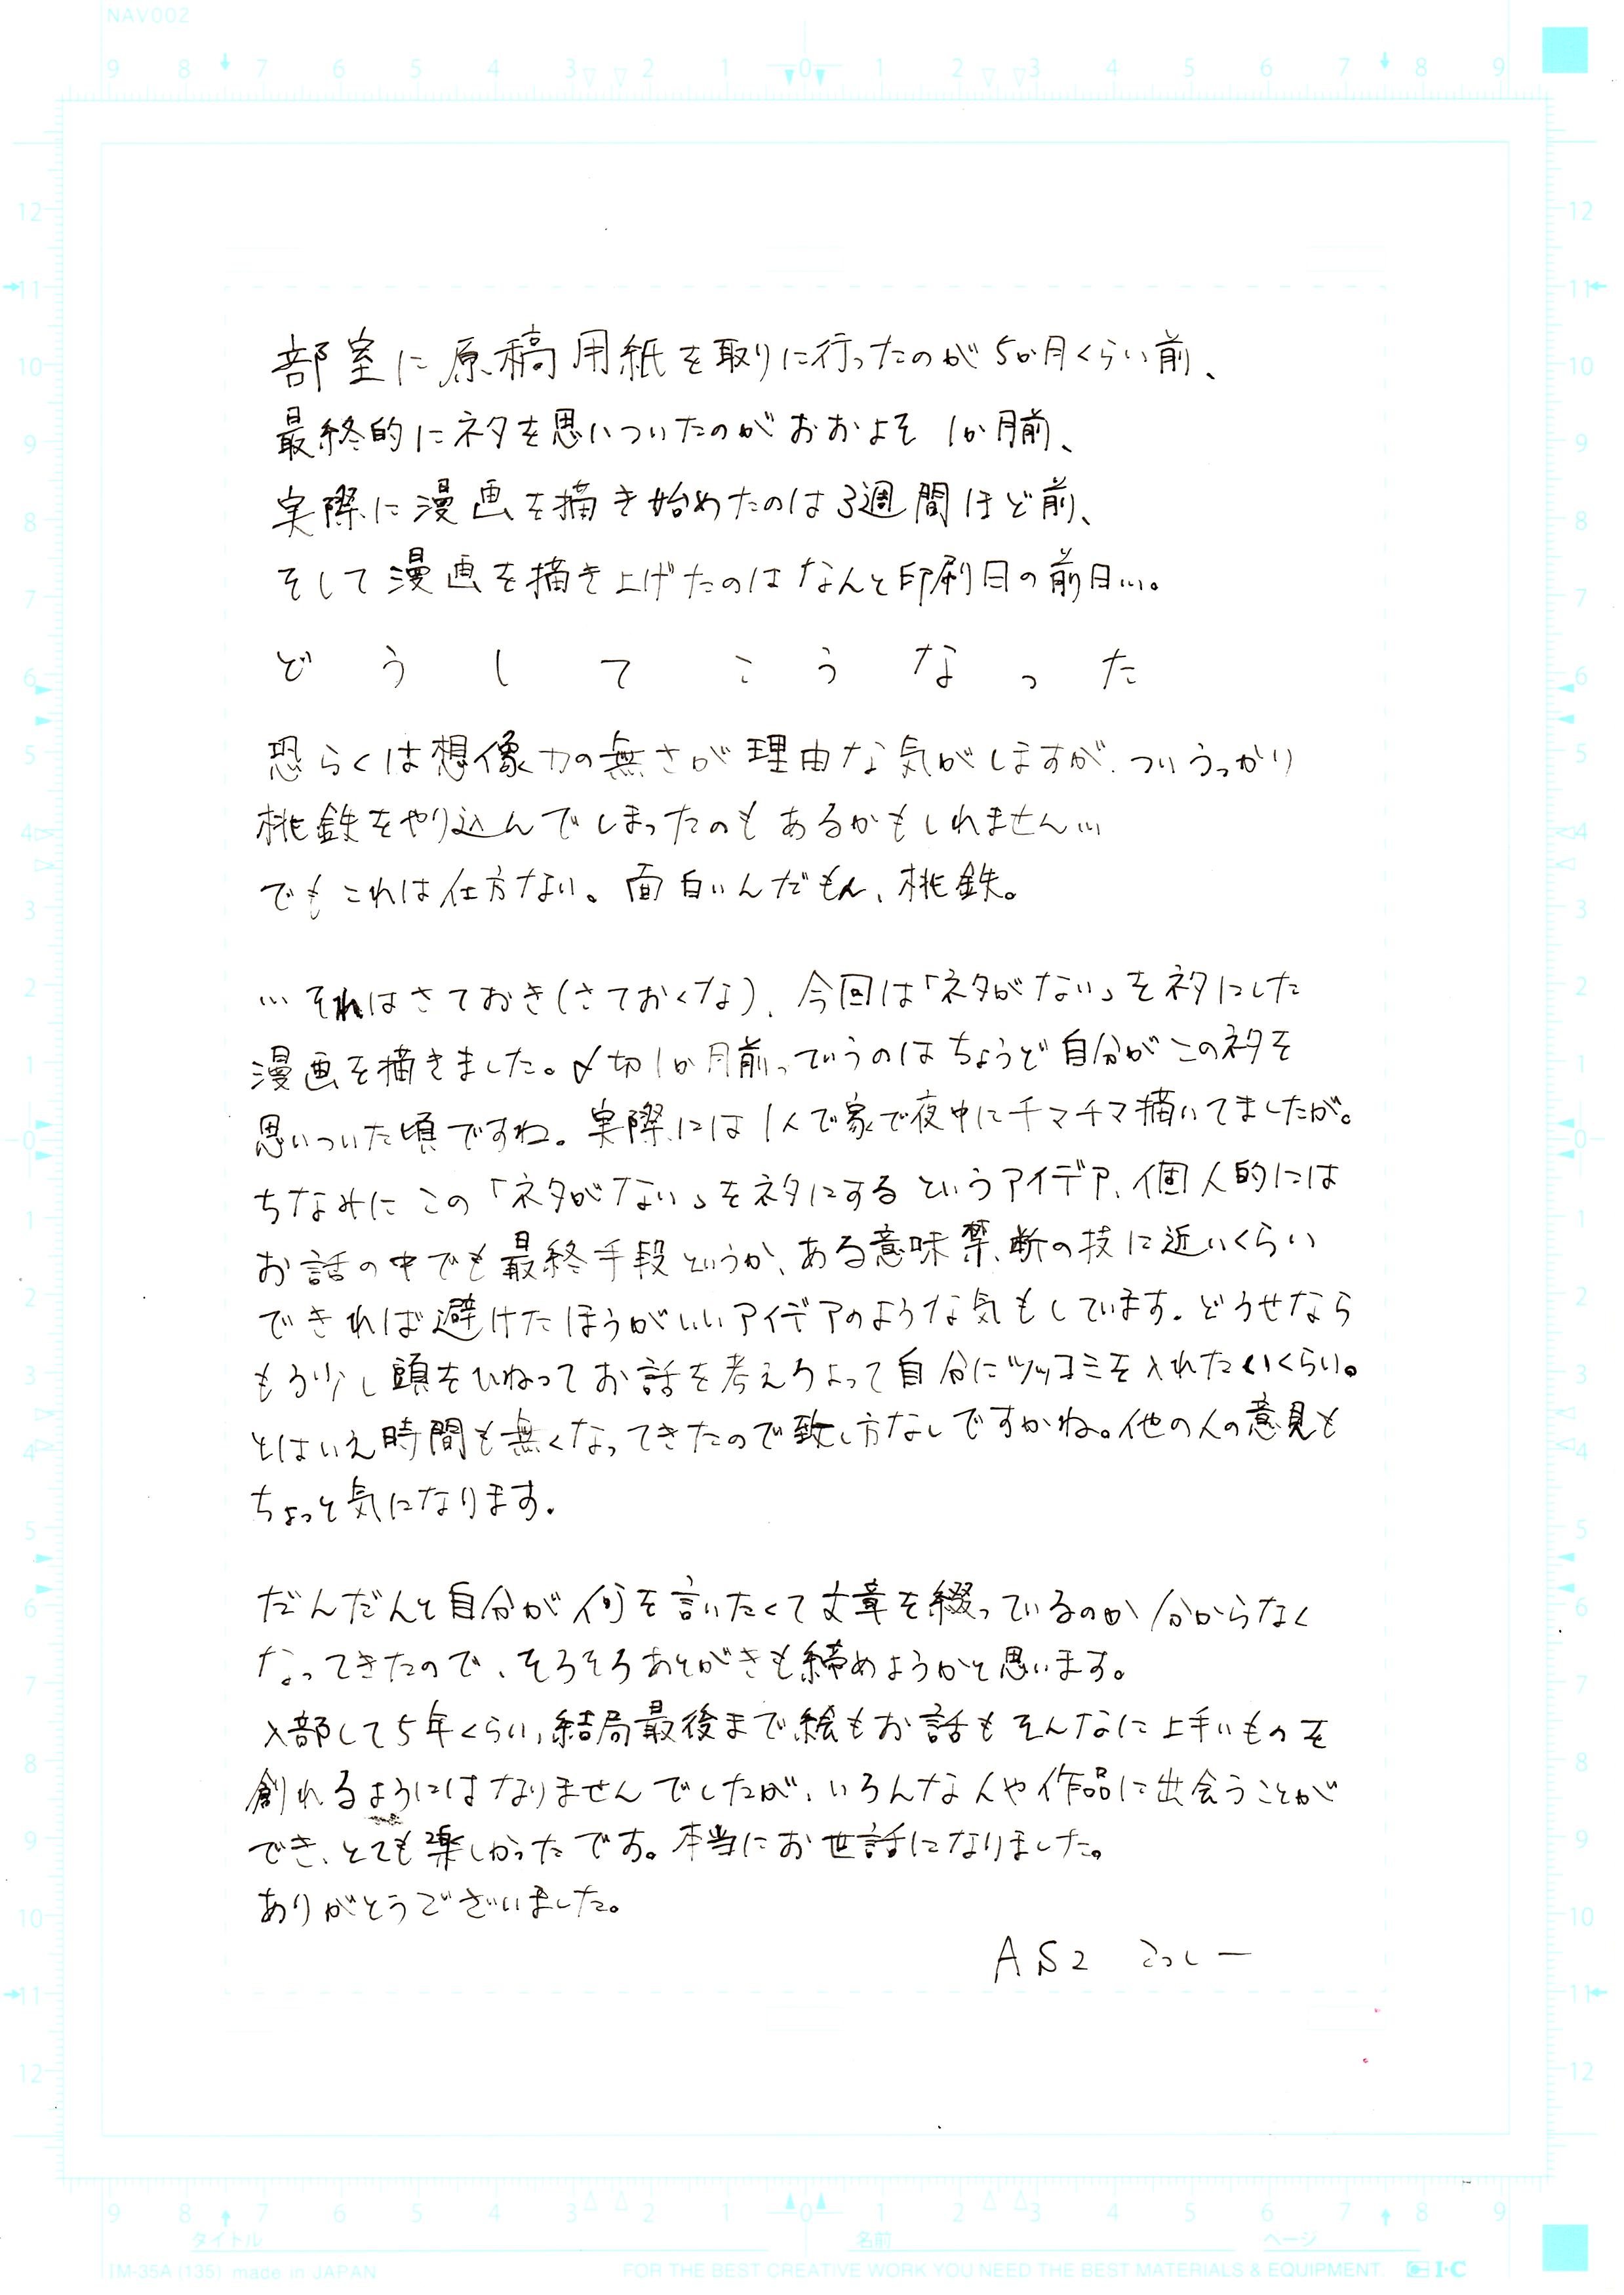 NAV002
部室に原稿用紙を取りに行ったのが5か月くらい前、
最終的にネタを思いついたのがおおよそ1か月前、
実際に漫画を描き始めたのは3週間ほど前、
そして漫画を描き上げたのはなんと印刷日の前日…。
どうしてこうなった
恐らくは想像力の無さが理由な気がしますが、ついうっかり
桃鉄をやり込んでしまったのもあるかもしれません…
でもこれは仕方ない。面白いんだもん、桃鉄。
…それはさておき(さておくな)、今回は「ネタがない」をネタにした
漫画を描きました。〆切1か月前っていうのはちょうど自分がこのネタを
思いついた頃ですね。実際には1人で家で夜中にチマチマ描いてましたが。
ちなみにこの「ネタがない」をネタにするというアイデア、個人的には
お話の中でも最終手段というか、ある意味禁断の技に近いくらい
できれば避けたほうがいいアイデアのような気もしています。どうせなら
もう少し頭をひねってお話を考えろよって自分にツッコミを入れたいくらい。
とはいえ時間も無くなってきたので致し方なしですかね。他の人の意見も
ちょっと気になります。
だんだんと自分が何を言いたくて文章を綴っているのか分からなく
なってきたので、そろそろあとがきも締めようかと思います。
入部して5年くらい、結局最後まで絵もお話もそんなに上手いものを
創れるようにはなりませんでしたが、いろんな人や作品に出会うことが
でき、とても楽しかったです。本当にお世話になりました。
ありがとうございました。
AS2 こっしー
タイトル 名前 ページ
IM-35A (135) made in JAPAN FOR THE BEST CREATIVE WORK YOU NEED THE BEST MATERIALS & EQUIPMENT. I・C